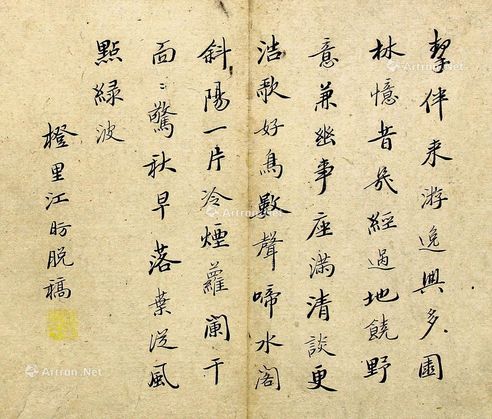 挈伴来游逸興多園
林憶昔幾經過地饒野
意兼幽事座滿清談更
浩歌好鳥數聲啼水閣
斜陽一片冷煙蘿闌干
面〻驚秋早落葉從風
點綠波
橙里江昉脫稿
Artron.Net
Artron.Net
Artron.Net
Artron.Net